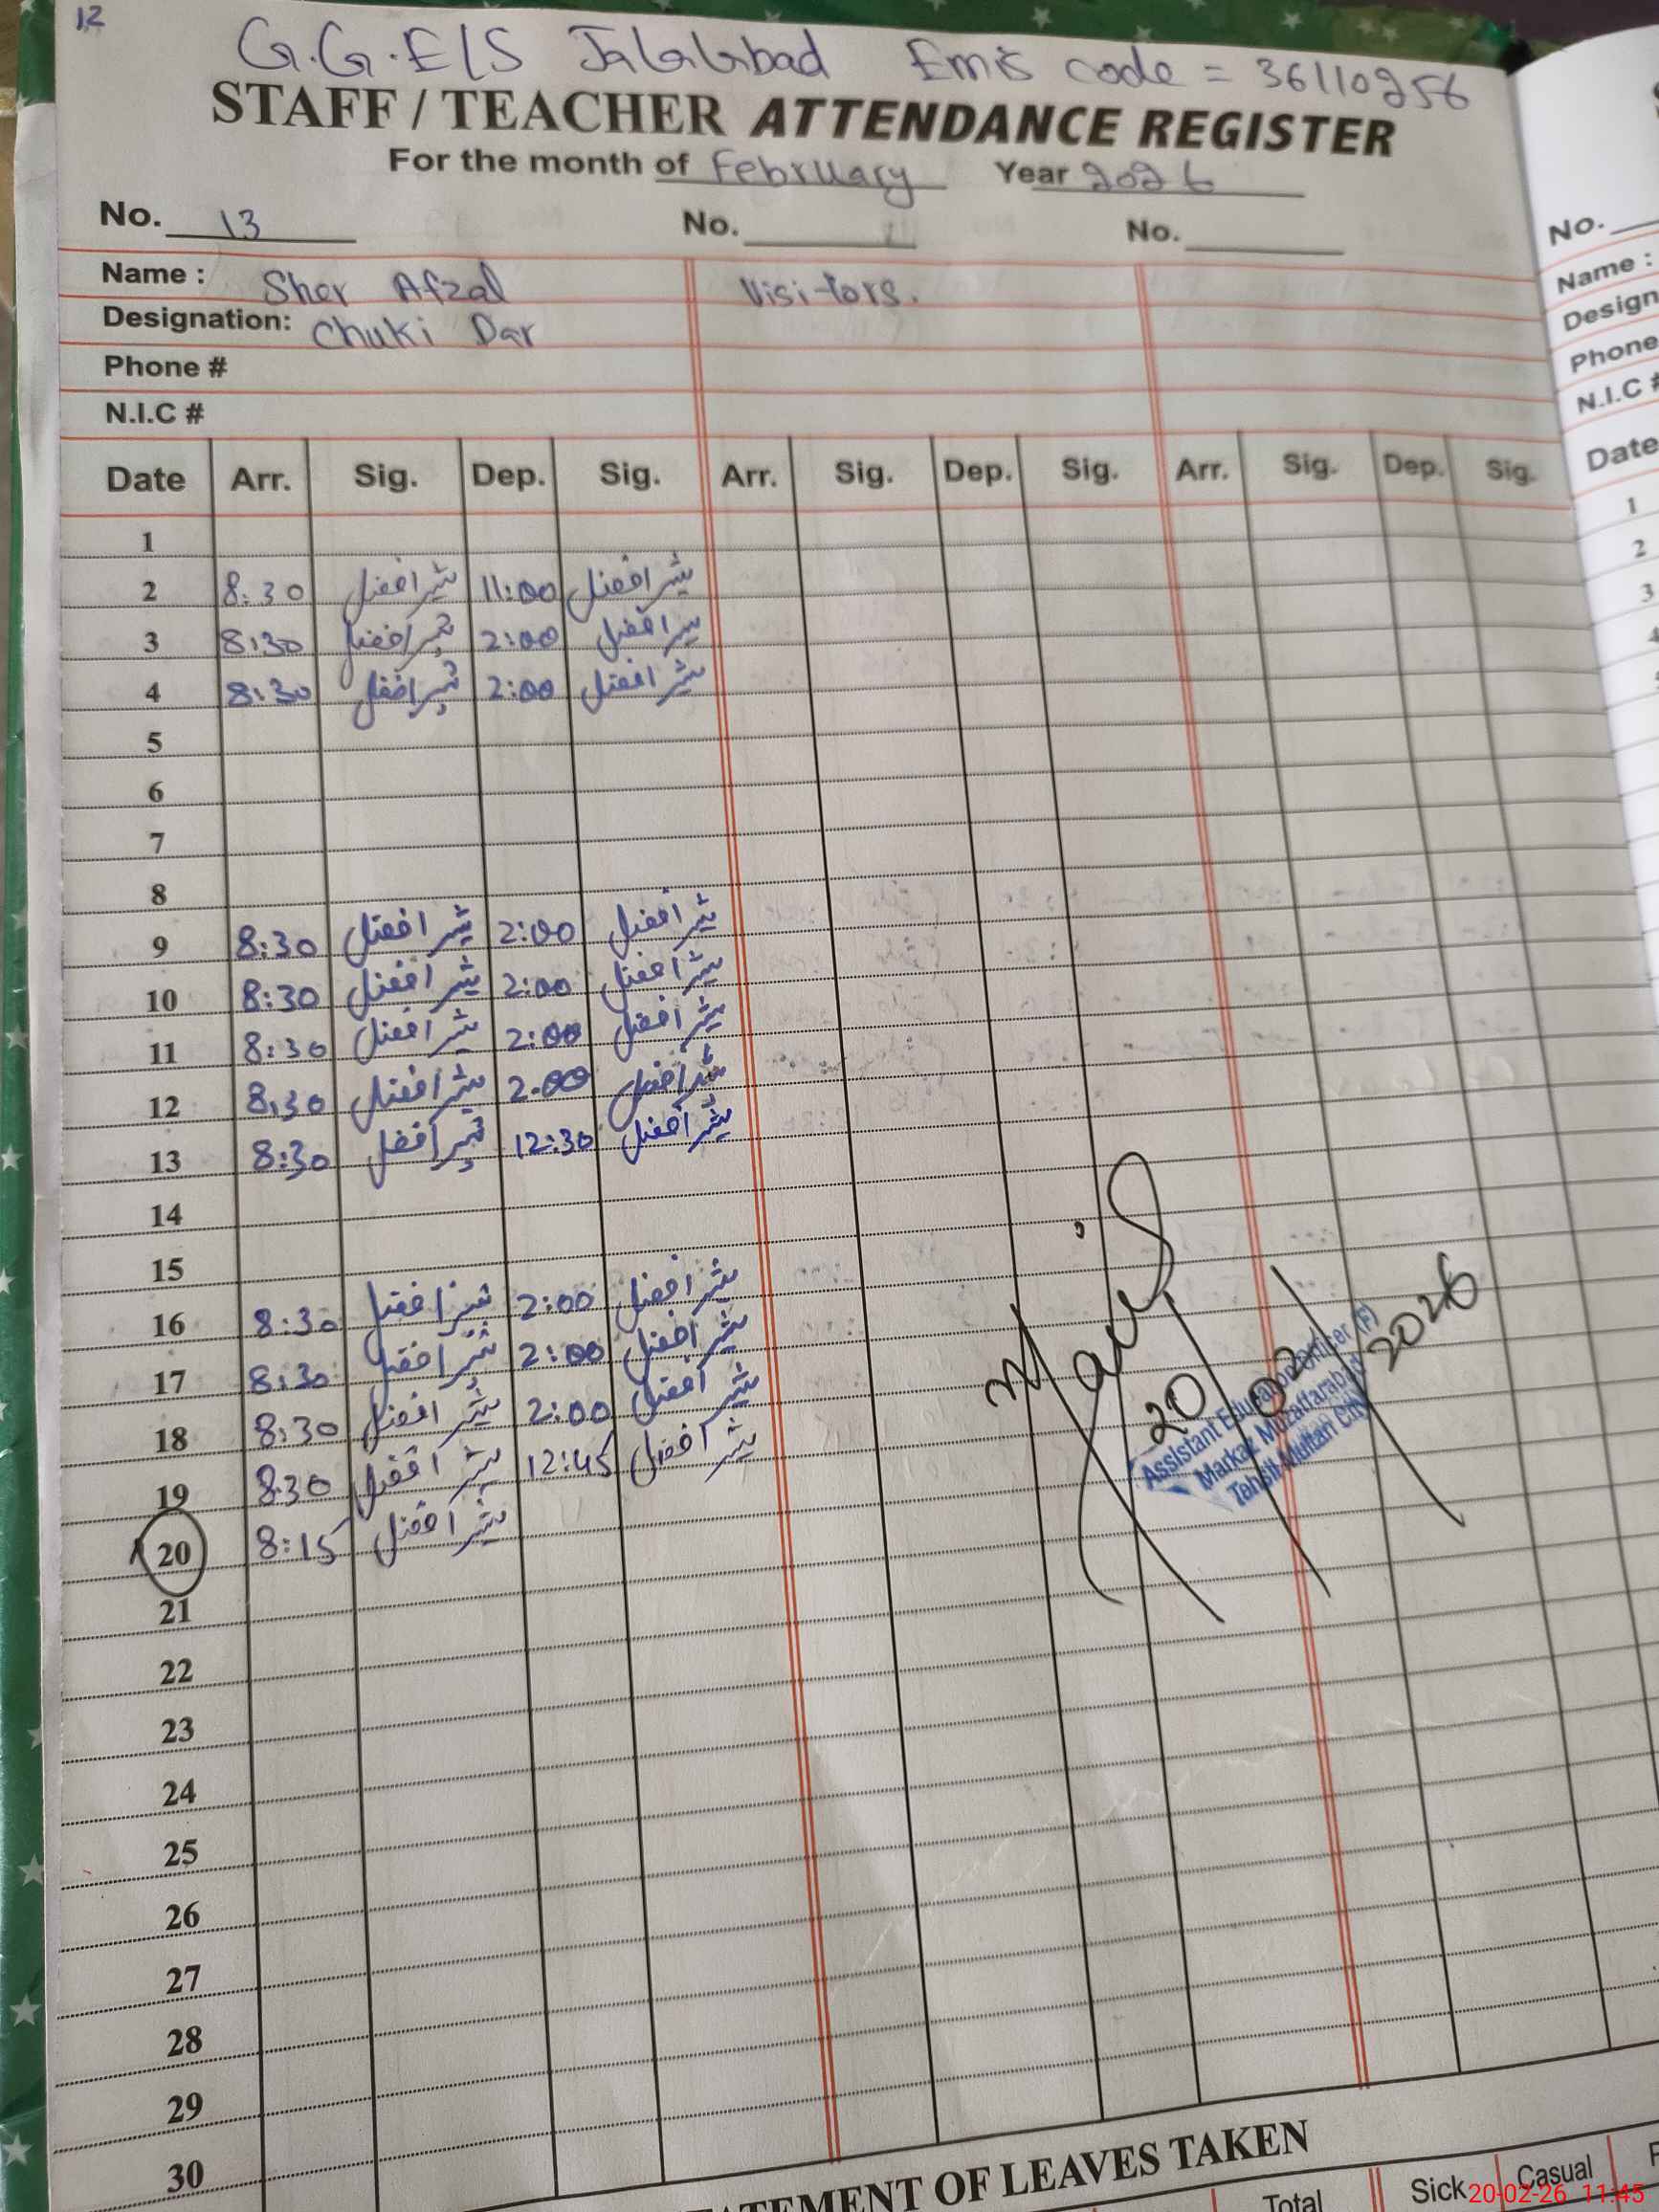 12
G.G.E/S Jalalabad Emis code = 36110256
STAFF / TEACHER ATTENDANCE REGISTER
For the month of February Year 2026
No. 13 No. No.
Name : Sher Afzal Visitors.
Designation: Chuki Dar
Phone #
N.I.C #
Date Arr. Sig. Dep. Sig. Arr. Sig. Dep. Sig. Arr. Sig. Dep. Sig.
1
2 8:30 شیر افضل 11:00 شیر افضل
3 8:30 شیر افضل 2:00 شیر افضل
4 8:30 شیر افضل 2:00 شیر افضل
5
6
7
8
9 8:30 شیر افضل 2:00 شیر افضل
10 8:30 شیر افضل 2:00 شیر افضل
11 8:30 شیر افضل 2:00 شیر افضل
12 8:30 شیر افضل 2:00 شیر افضل
13 8:30 شیر افضل 12:30 شیر افضل
14
15
16 8:30 شیر افضل 2:00 شیر افضل
17 8:30 شیر افضل 2:00 شیر افضل
18 8:30 شیر افضل 2:00 شیر افضل
19 8:30 شیر افضل 12:45 شیر افضل
20 8:15 شیر افضل
21
22
23
24
25
26
27
28
29
30
20/02/2026
Assistant Education Officer (F)
Markaz Muzaffarabad
Tehsil Multan City
STATEMENT OF LEAVES TAKEN
Total Sick Casual
No.
Name :
Design
Phone
N.I.C #
Date
1
2
3
4
20-02-26 11:45